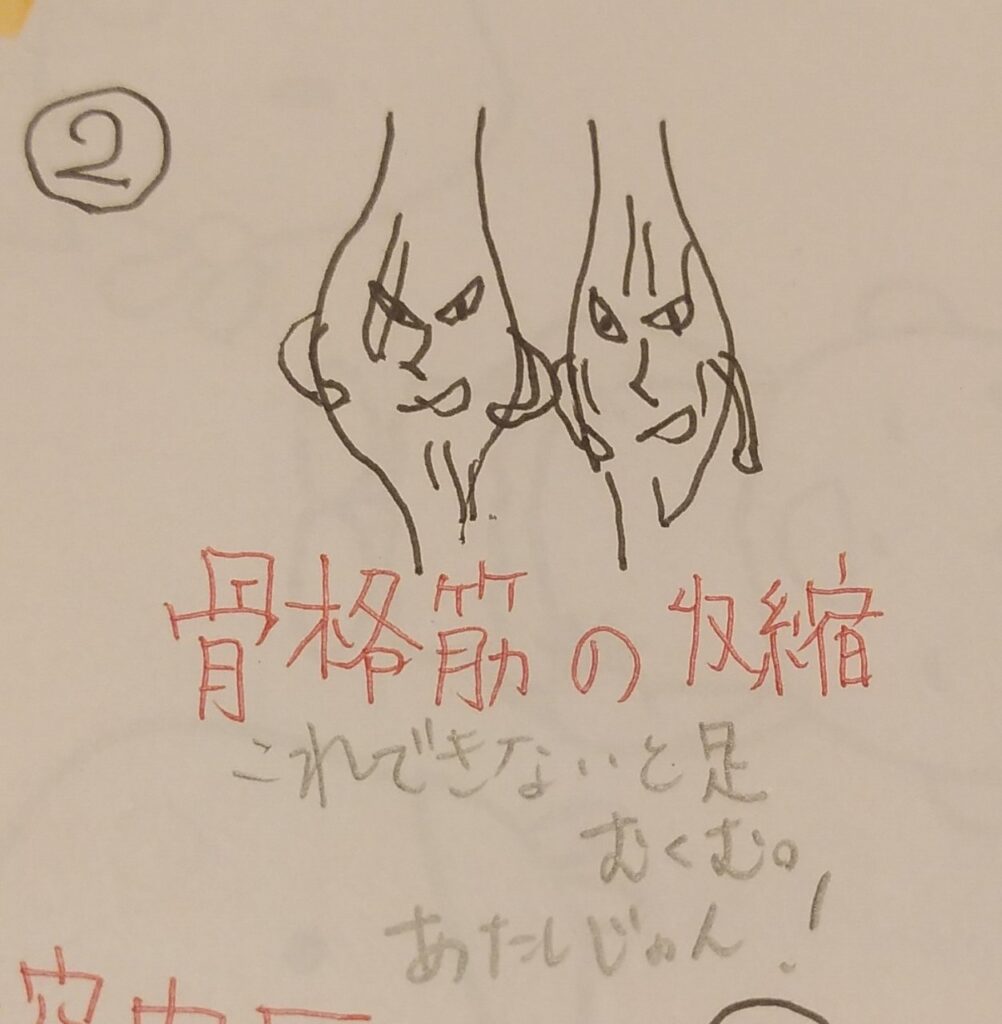 ②
骨格筋の収縮
これできないと足
むくむ。
あたしじゃん!